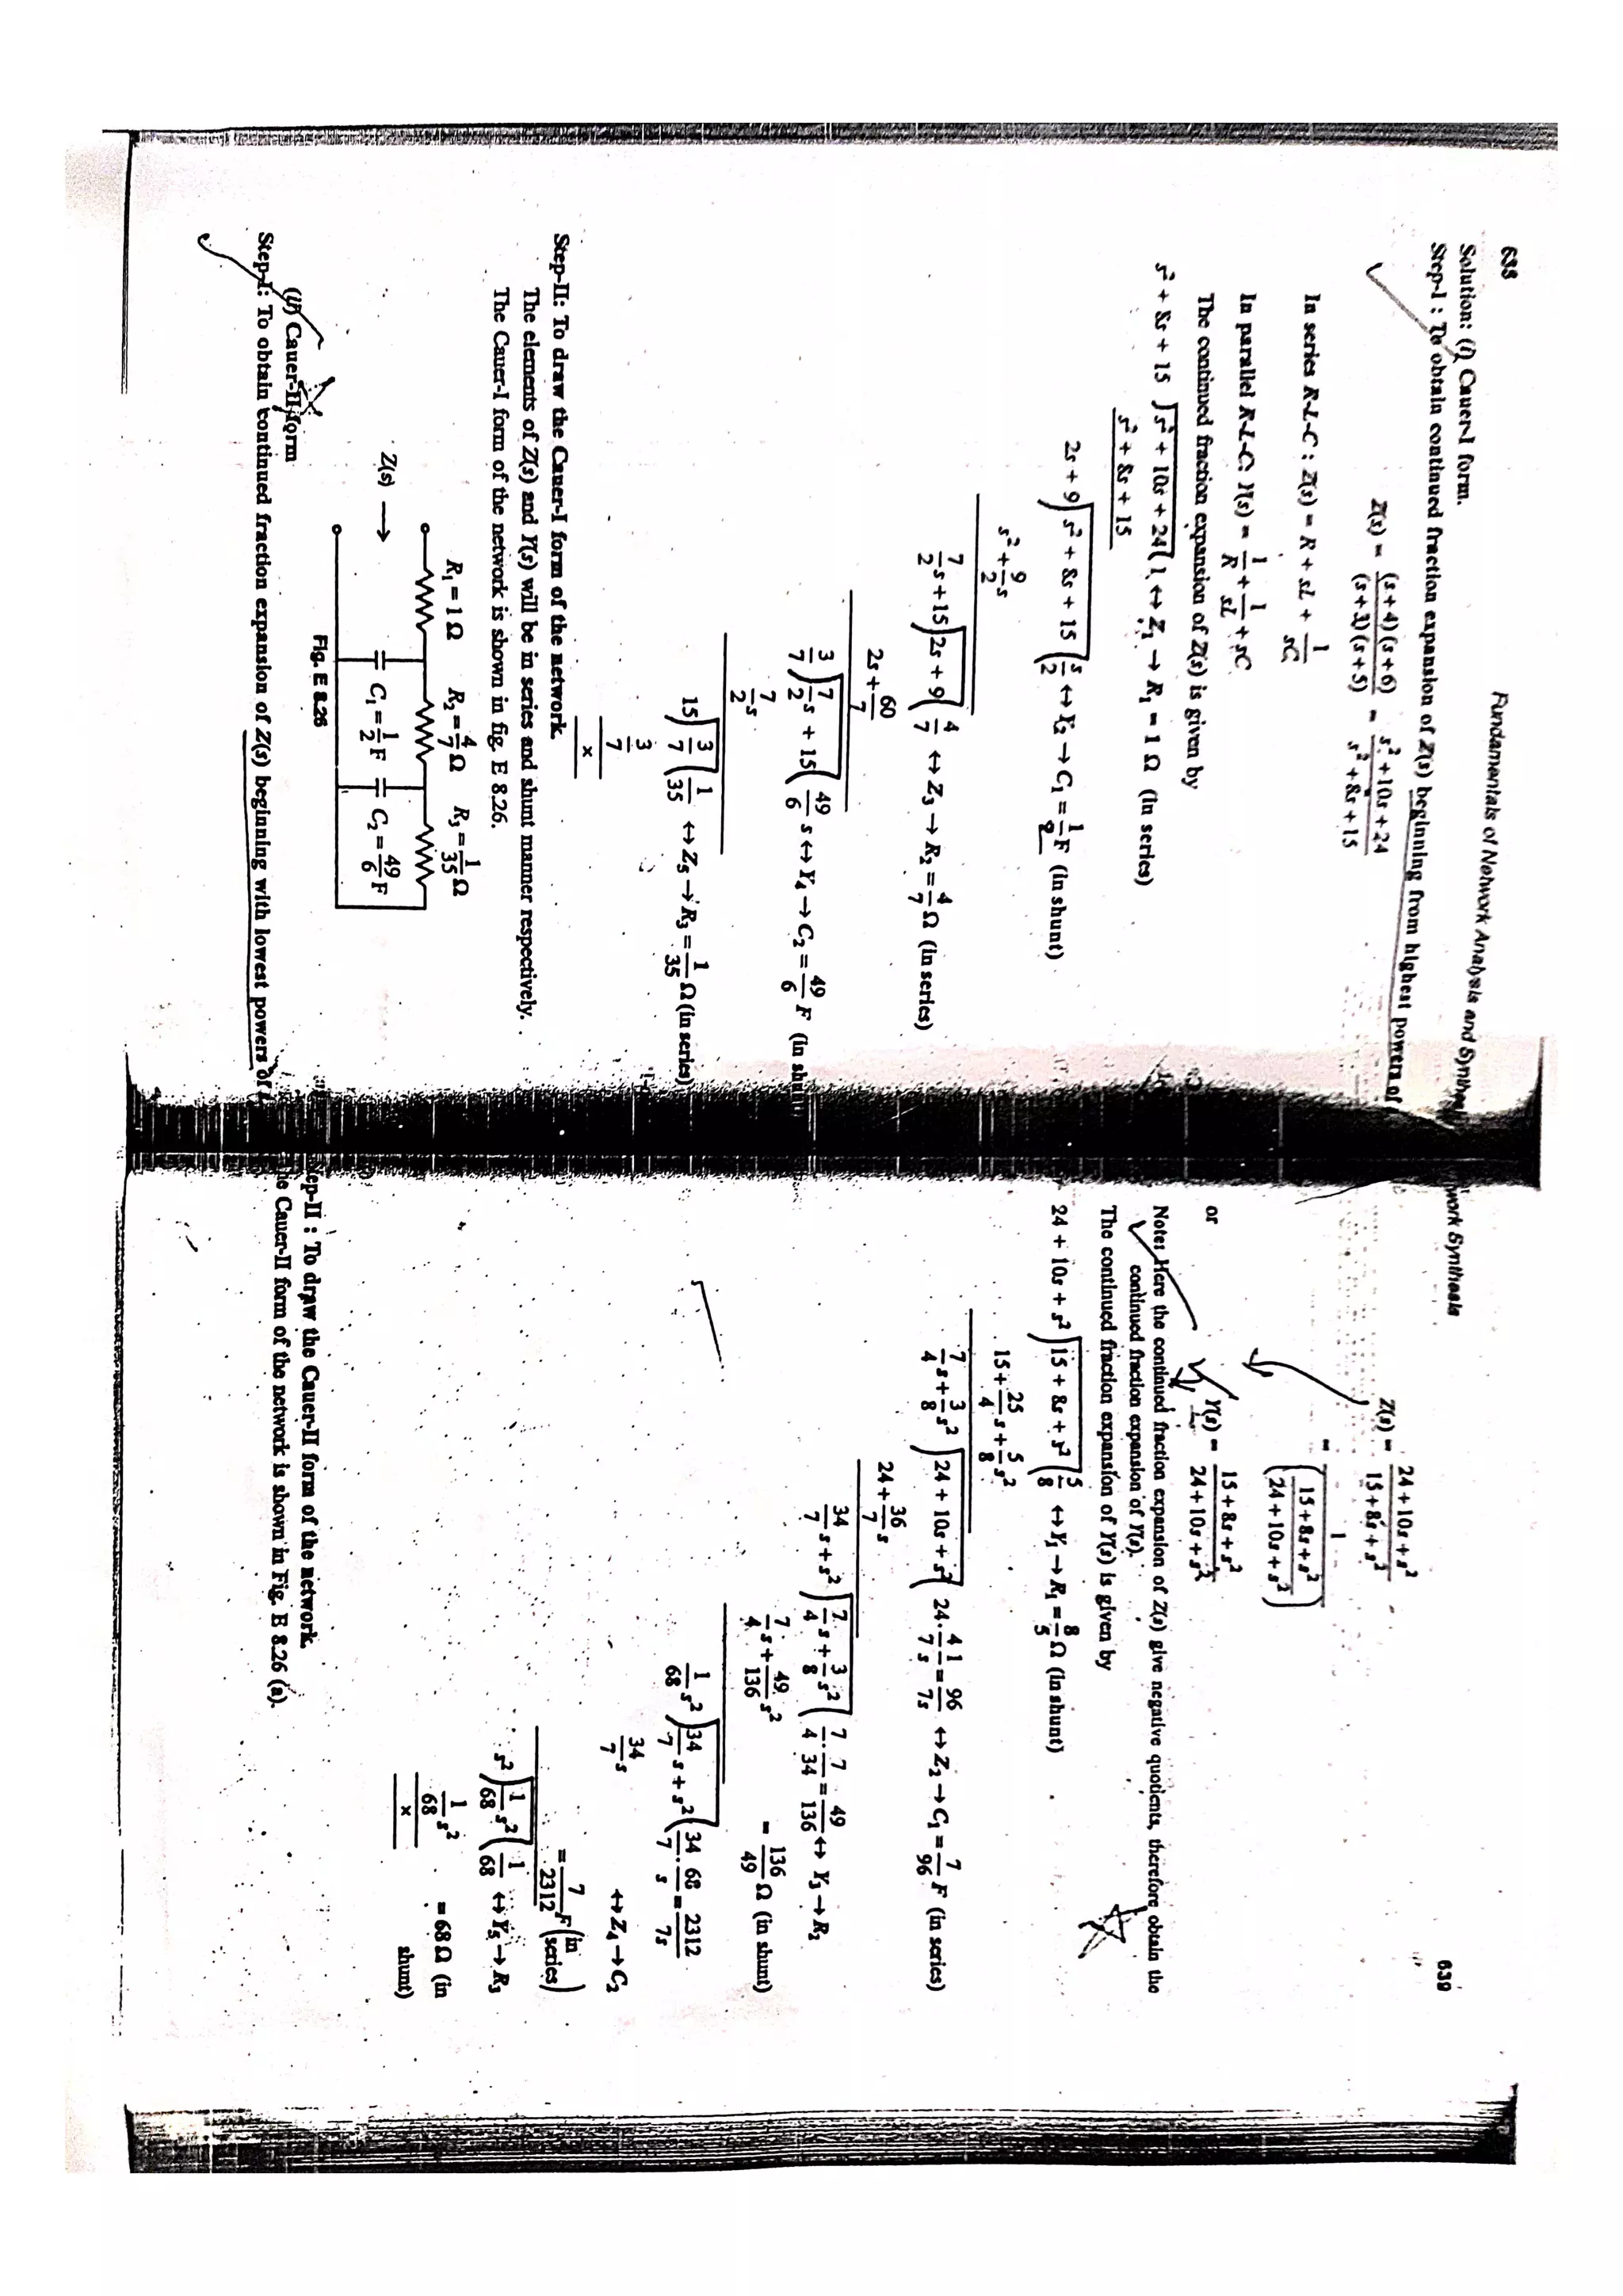 638
Fundamentals of Network Analysis and Synthesis
Solution: (i) Cauer-I form.
Step-I : To obtain continued fraction expansion of Z(s) beginning from highest powers of
Z(s) = (s+4)(s+6) / (s+3)(s+5) = s² + 10s + 24 / s² + 8s + 15
In series R-L-C : Z(s) = R + sL + 1/sC
In parallel R-L-C: Y(s) = 1/R + 1/sL + sC
The continued fraction expansion of Z(s) is given by
s² + 8s + 15 ) s² + 10s + 24 ( 1 ↔ Z₁ → R₁ = 1 Ω (in series)
s² + 8s + 15
2s + 9 ) s² + 8s + 15 ( s/2 ↔ Y₂ → C₁ = 1/2 F (in shunt)
s² + 9/2 s
7/2 s + 15 ) 2s + 9 ( 4/7 ↔ Z₃ → R₂ = 4/7 Ω (in series)
2s + 60/7
3/7 ) 7/2 s + 15 ( 49/6 s ↔ Y₄ → C₂ = 49/6 F (in
7/2 s
15 ) 3/7 ( 1/35 ↔ Z₅ → R₃ = 1/35 Ω (in series)
3/7
x
Step-II: To draw the Cauer-I form of the network.
The elements of Z(s) and Y(s) will be in series and shunt manner respectively.
The Cauer-I form of the network is shown in fig. E 8.26.
R₁ = 1 Ω R₂ = 4/7 Ω R₃ = 1/35 Ω
Z(s) →
C₁ = 1/2 F C₂ = 49/6 F
Fig. E 8.26
(ii) Cauer-II form
Step-I: To obtain continued fraction expansion of Z(s) beginning with lowest powers of
work Synthesis
639
Z(s) = 24 + 10s + s² / 15 + 8s + s²
= 1 / ( 15 + 8s + s² / 24 + 10s + s² )
or
Y(s) = 15 + 8s + s² / 24 + 10s + s²
Note: Here the continued fraction expansion of Z(s) give negative quotients, therefore obtain the
continued fraction expansion of Y(s).
The continued fraction expansion of Y(s) is given by
24 + 10s + s² ) 15 + 8s + s² ( 5/8 ↔ Y₁ → R₁ = 8/5 Ω (in shunt)
15 + 25/4 s + 5/8 s²
7/4 s + 3/8 s² ) 24 + 10s + s² ( 24 · 4/7 1/s = 96/7s ↔ Z₂ → C₁ = 7/96 F (in series)
24 + 36/7 s
34/7 s + s² ) 7/4 s + 3/8 s² ( 7/4 · 7/34 = 49/136 ↔ Y₃ → R₂
7/4 s + 49/136 s² = 136/49 Ω (in shunt)
1/68 s² ) 34/7 s + s² ( 34/7 · 68/s = 2312/7s
34/7 s ↔ Z₄ → C₂
= 7/2312 F (in series)
s² ) 1/68 s² ( 1/68 ↔ Y₅ → R₃
1/68 s² = 68 Ω (in
x shunt)
Step-II : To draw the Cauer-II form of the network.
The Cauer-II form of the network is shown in Fig. E 8.26 (a).